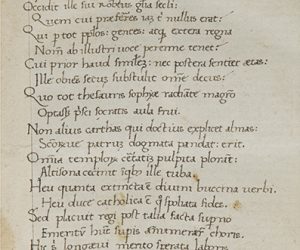 Occidit ille sui Robertus gloria secli:
Quem cui præferres uix tibi nullus erat:
Qui per tot populos: gentes: atque extera regna
Nomen ab illustri uoce perenne tenet:
Cui prior haud similem: nec postera sentiet ætas:
Ille obiens secum substulit omne decus:
Quo tot thesauris sophyæ radiante magistro
Optasset prisci socratis aula frui.
Non alius carthas qui doctius explicet almas:
Secretaue patrum dogmata pandat: erit.
Omnia templorum cessatis pulpita plorant:
Altisona cecinit quibus ille tuba.
Heu quanta extincta est diuini buccina uerbi.
Heu duce catholica est quam spoliata fides.
Sed placuit regi post talia facta superno
Emeritum hunc supis annumerasse choris.
Hic longæui merito sperata laboris